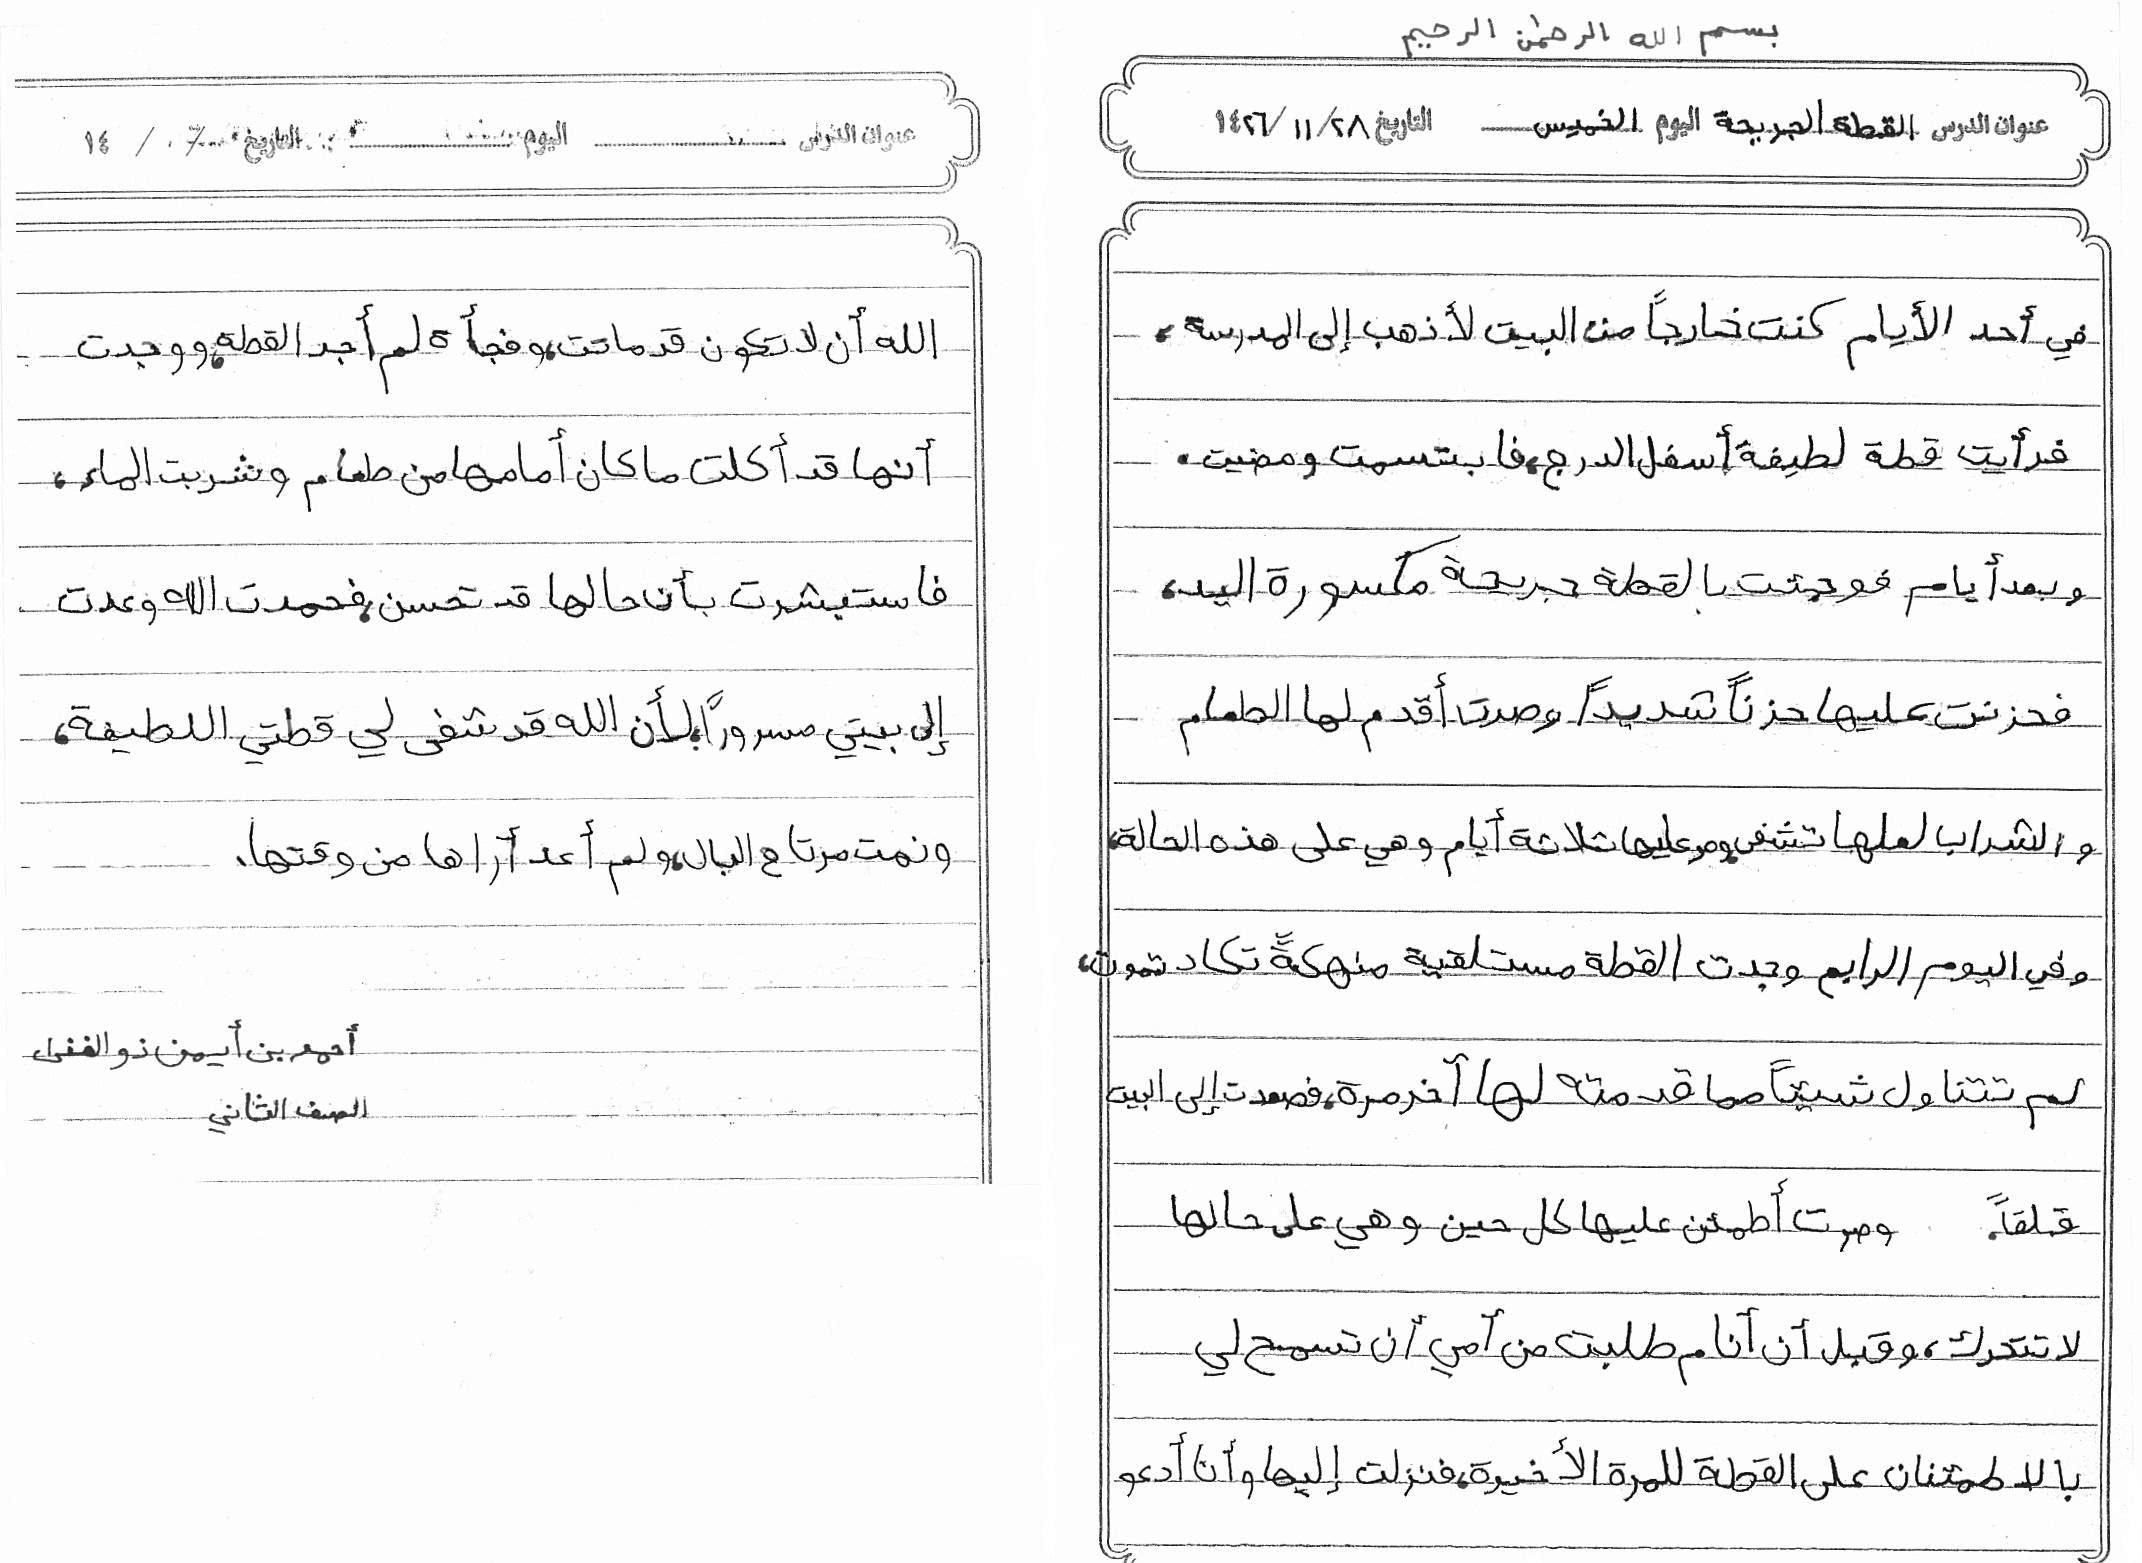 بسم الله الرحمن الرحيم
عنوان الدرس القطة الجريحة اليوم الخميس التاريخ ٢٨/ ١١/ ١٤٢٦
في أحد الأيام كنت خارجاً من البيت لأذهب إلى المدرسة،
فرأيت قطة لطيفة أسفل الدرج، فابتسمت ومضيت.
وبعد أيام فوجئت بالقطة جريحة مكسورة اليد،
فحزنت عليها حزناً شديداً، وصرت أقدم لها الطعام
والشراب لعلها تشفى، ومر عليها ثلاثة أيام وهي على هذه الحالة،
وفي اليوم الرابع وجدت القطة مستلقية منهكةً تكاد تموت،
لم تتناول شيئاً مما قدمته لها آخر مرة، فصعدت إلى البيت
قلقاً. وصرت أطمئن عليها كل حين وهي على حالها
لا تتحرك، وقبل أن أنام طلبت من أمي أن تسمح لي
بالاطمئنان على القطة للمرة الأخيرة، فنزلت إليها وأنا أدعو
عنوان الدرس اليوم التاريخ / ١٤
الله أن لا تكون قد ماتت، وفجأة لم أجد القطة، ووجدت
أنها قد أكلت ما كان أمامها من طعام وشربت الماء،
فاستبشرت بأن حالها قد تحسن، فحمدت الله وعدت
إلى بيتي مسروراً، لأن الله قد شفى لي قطتي اللطيفة،
ونمت مرتاح البال، ولم أعد أراها من وقتها.
أحمد بن أيمن ذو الغنى
الصف الثاني